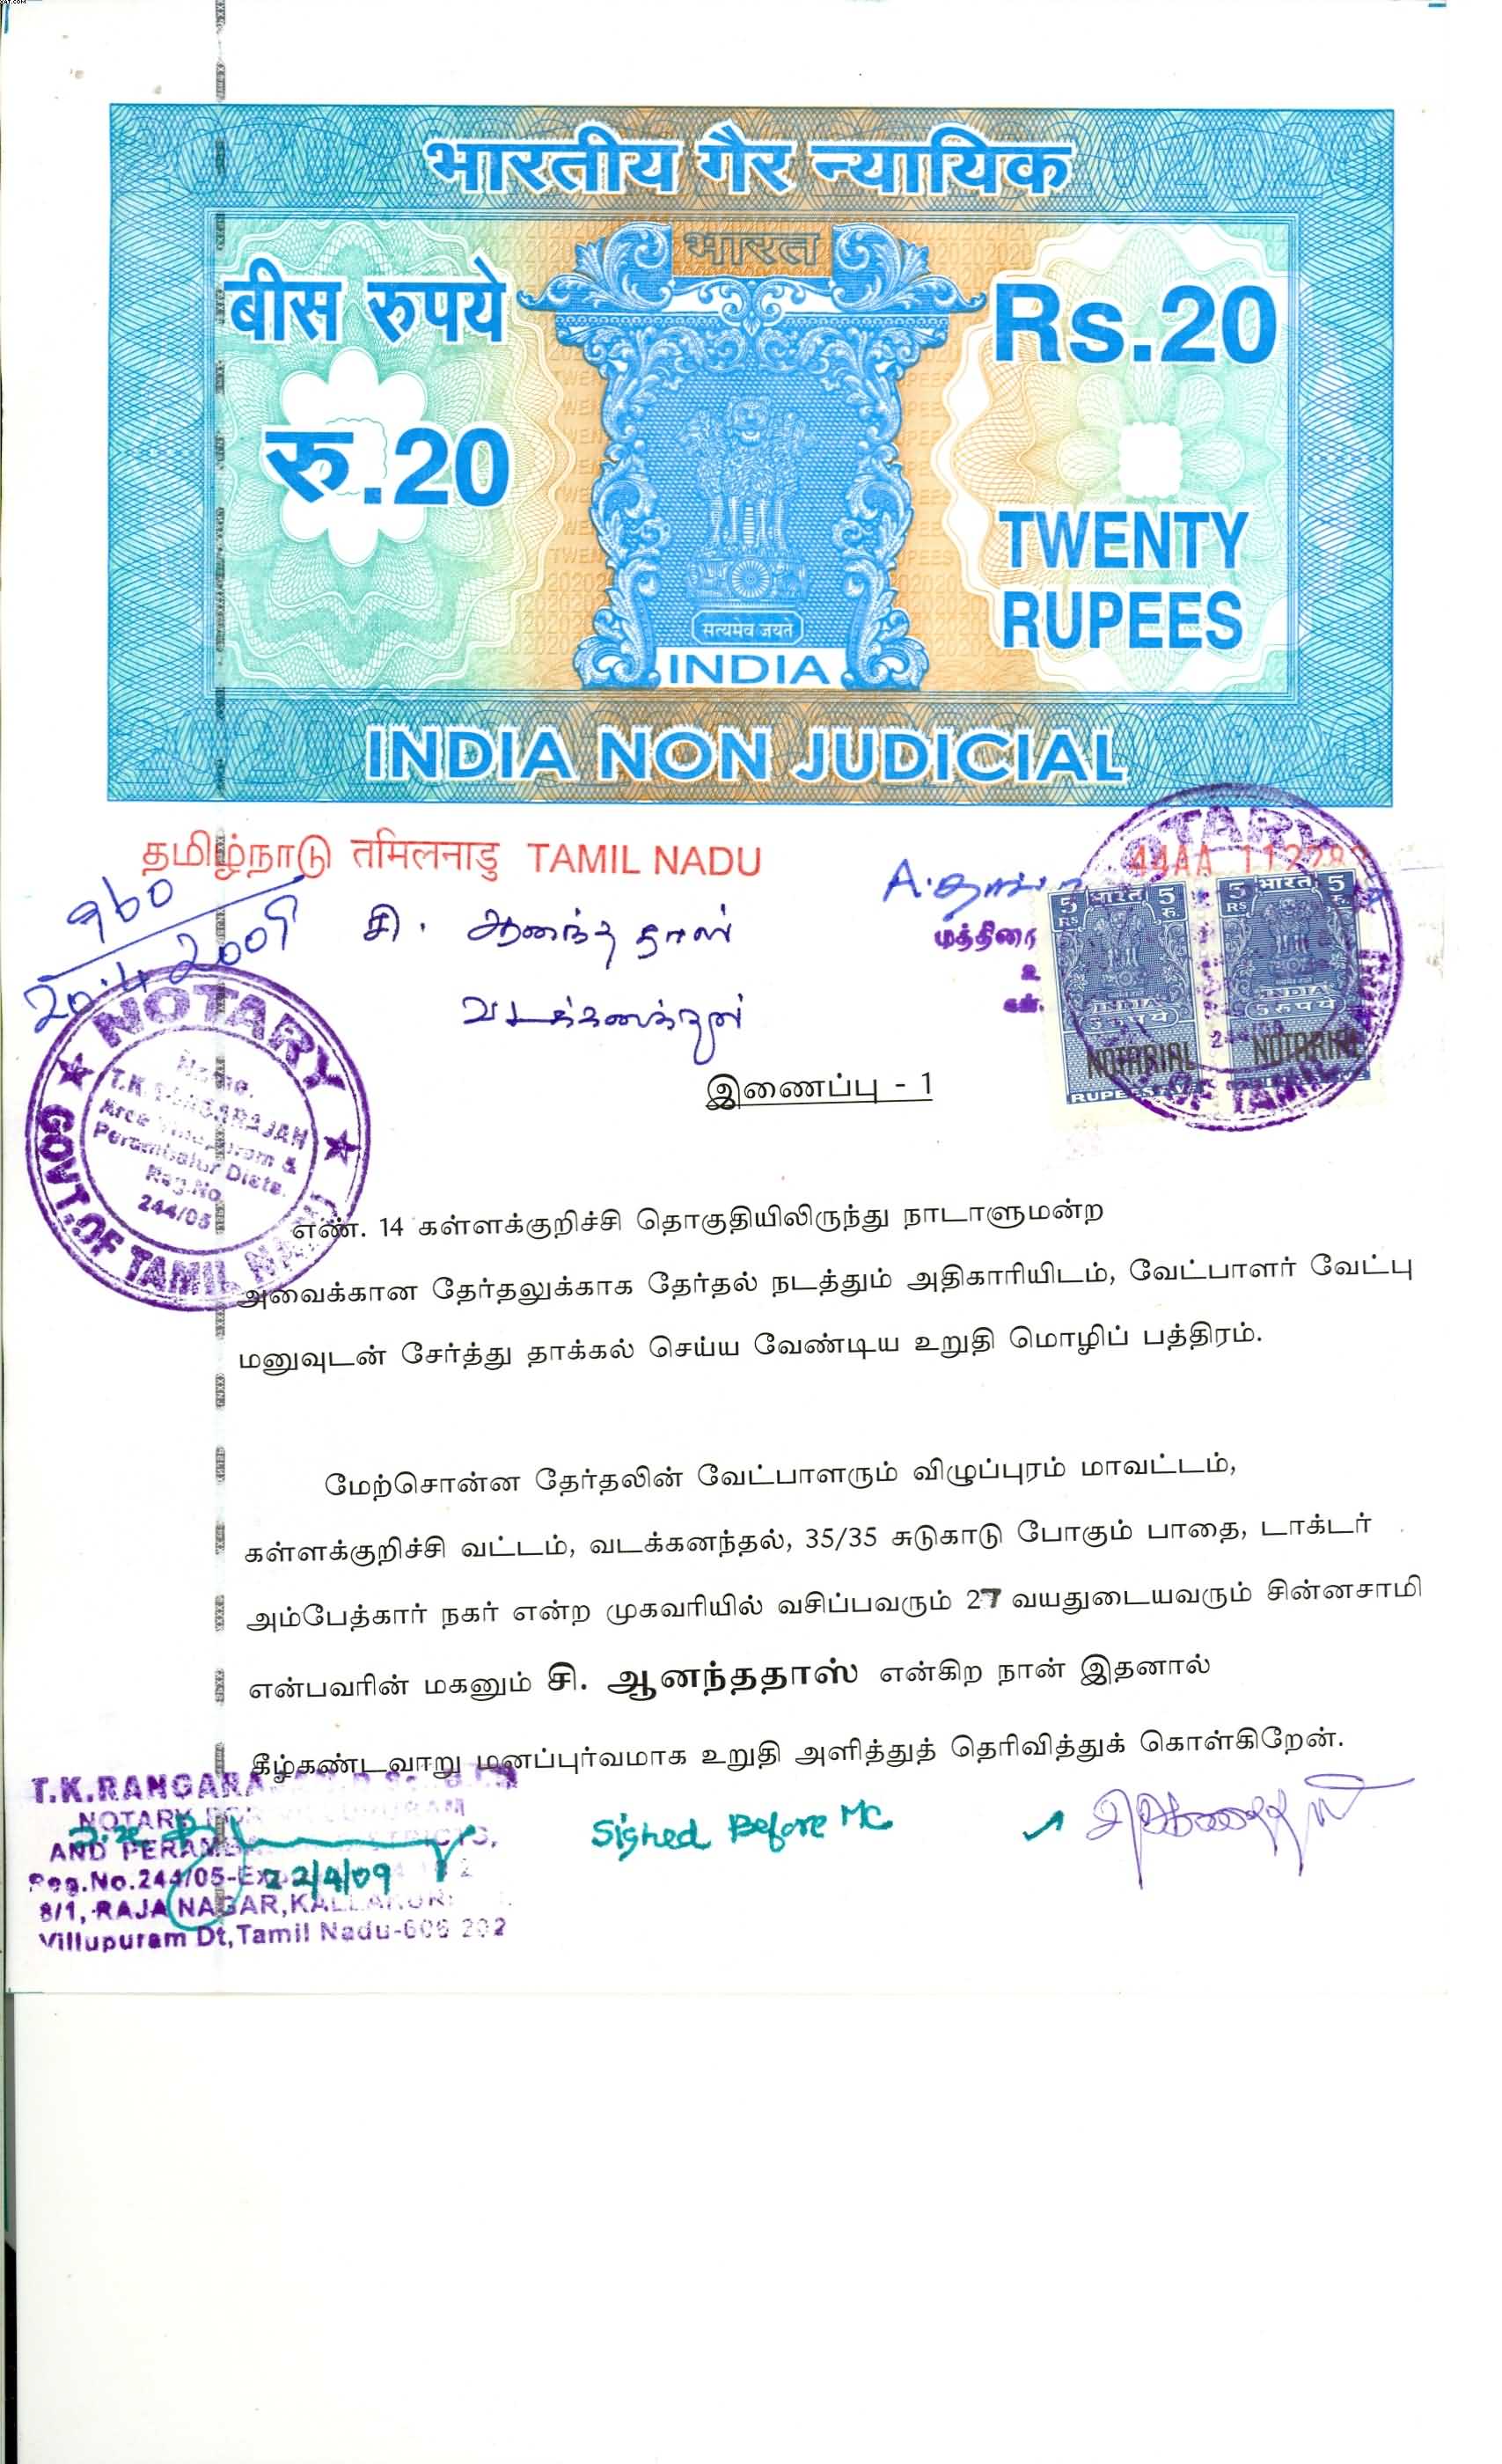 भारतीय गैर न्यायिक
भारत
बीस रुपये
Rs.20
रु.20
TWENTY
RUPEES
सत्यमेव जयते
INDIA
INDIA NON JUDICIAL
தமிழ்நாடு तमिलनाडु TAMIL NADU
44AA 11228
960
20.4.2009
சி. ஆனந்ததாஸ்
A.
முத்திரை
भारत
5 Rs 5 रु.
INDIA
5 रुपये
NOTARIAL
भारत
5 Rs 5 रु.
INDIA
5 रुपये
NOTARIAL
NOTARY
GOVT.OF TAMIL NADU
Name.
T.K. RANGARAJAN
Area Villupuram &
Perambalur Dists.
Reg.No.
244/05
இணைப்பு - 1
எண். 14 கள்ளக்குறிச்சி தொகுதியிலிருந்து நாடாளுமன்ற
அவைக்கான தேர்தலுக்காக தேர்தல் நடத்தும் அதிகாரியிடம், வேட்பாளர் வேட்பு
மனுவுடன் சேர்த்து தாக்கல் செய்ய வேண்டிய உறுதி மொழிப் பத்திரம்.
மேற்சொன்ன தேர்தலின் வேட்பாளரும் விழுப்புரம் மாவட்டம்,
கள்ளக்குறிச்சி வட்டம், வடக்கனந்தல், 35/35 சுடுகாடு போகும் பாதை, டாக்டர்
அம்பேத்கார் நகர் என்ற முகவரியில் வசிப்பவரும் 27 வயதுடையவரும் சின்னசாமி
என்பவரின் மகனும் சி. ஆனந்ததாஸ் என்கிற நான் இதனால்
கீழ்கண்டவாறு மனப்பூர்வமாக உறுதி அளித்துத் தெரிவித்துக் கொள்கிறேன்.
T.K.RANGARA
NOTARY FOR
AND PERAM
Reg.No.244/05-Ex
22/4/09
8/1, RAJA NAGAR, KALLAKURI
Villupuram Dt,Tamil Nadu-606 202
Signed Before Me